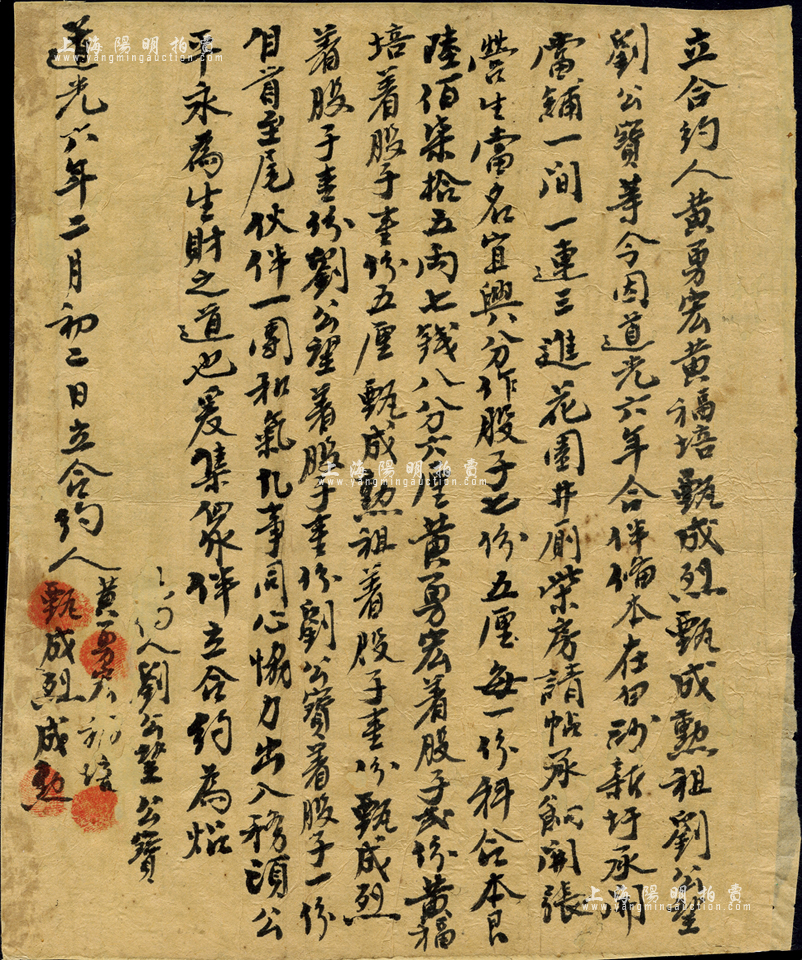 立合約人黄勇宏黄福培甄成烈甄成勲祖劉公望
劉公寶等今因道光六年合伴偹本在白沙新圩承開
當鋪一間一連三進花園井厠柴房請帖承餉開張
營生當名宜興八分作股子七份五厘每一份科合本艮
陸佰柒拾五両七錢八分六厘黄勇宏着股子弍份黄福
培着股子壹份五厘甄成勲祖着股子壹份甄成烈
着股子壹份劉公望着股子壹份劉公寶着股子一份
自首至尾伙伴一團和氣凡事同心恊力出入務須公
平永為生財之道也爰集衆伴立合約為炤
合約人劉公望公寶
黄勇宏福培
道光六年二月初二日立合約人甄成烈成勲
上海陽明拍賣
www.yangmingauction.com
上海陽明拍賣
www.yangmingauction.com
上海陽明拍賣
www.yangmingauction.com